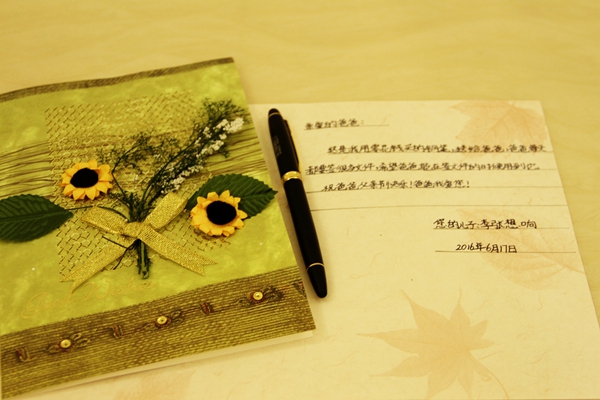 亲爱的爸爸：
这是我用零花钱买的钢笔，送给爸爸，爸爸每天
都要签很多文件，希望爸爸能在签文件的时候使用到它。
祝爸爸父亲节快乐！爸爸我爱您！
您的儿子：李张想
2016年6月17日